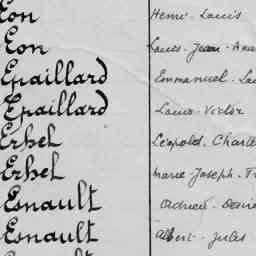 Eon Henri-Louis
Eon Louis-Jean
Epaillard Emmanuel-
Epaillard Louis-Victor
Erhel Léopold-
Erhel Marie-Joseph-
Esnault Adrien-
Esnault Albert-Jules